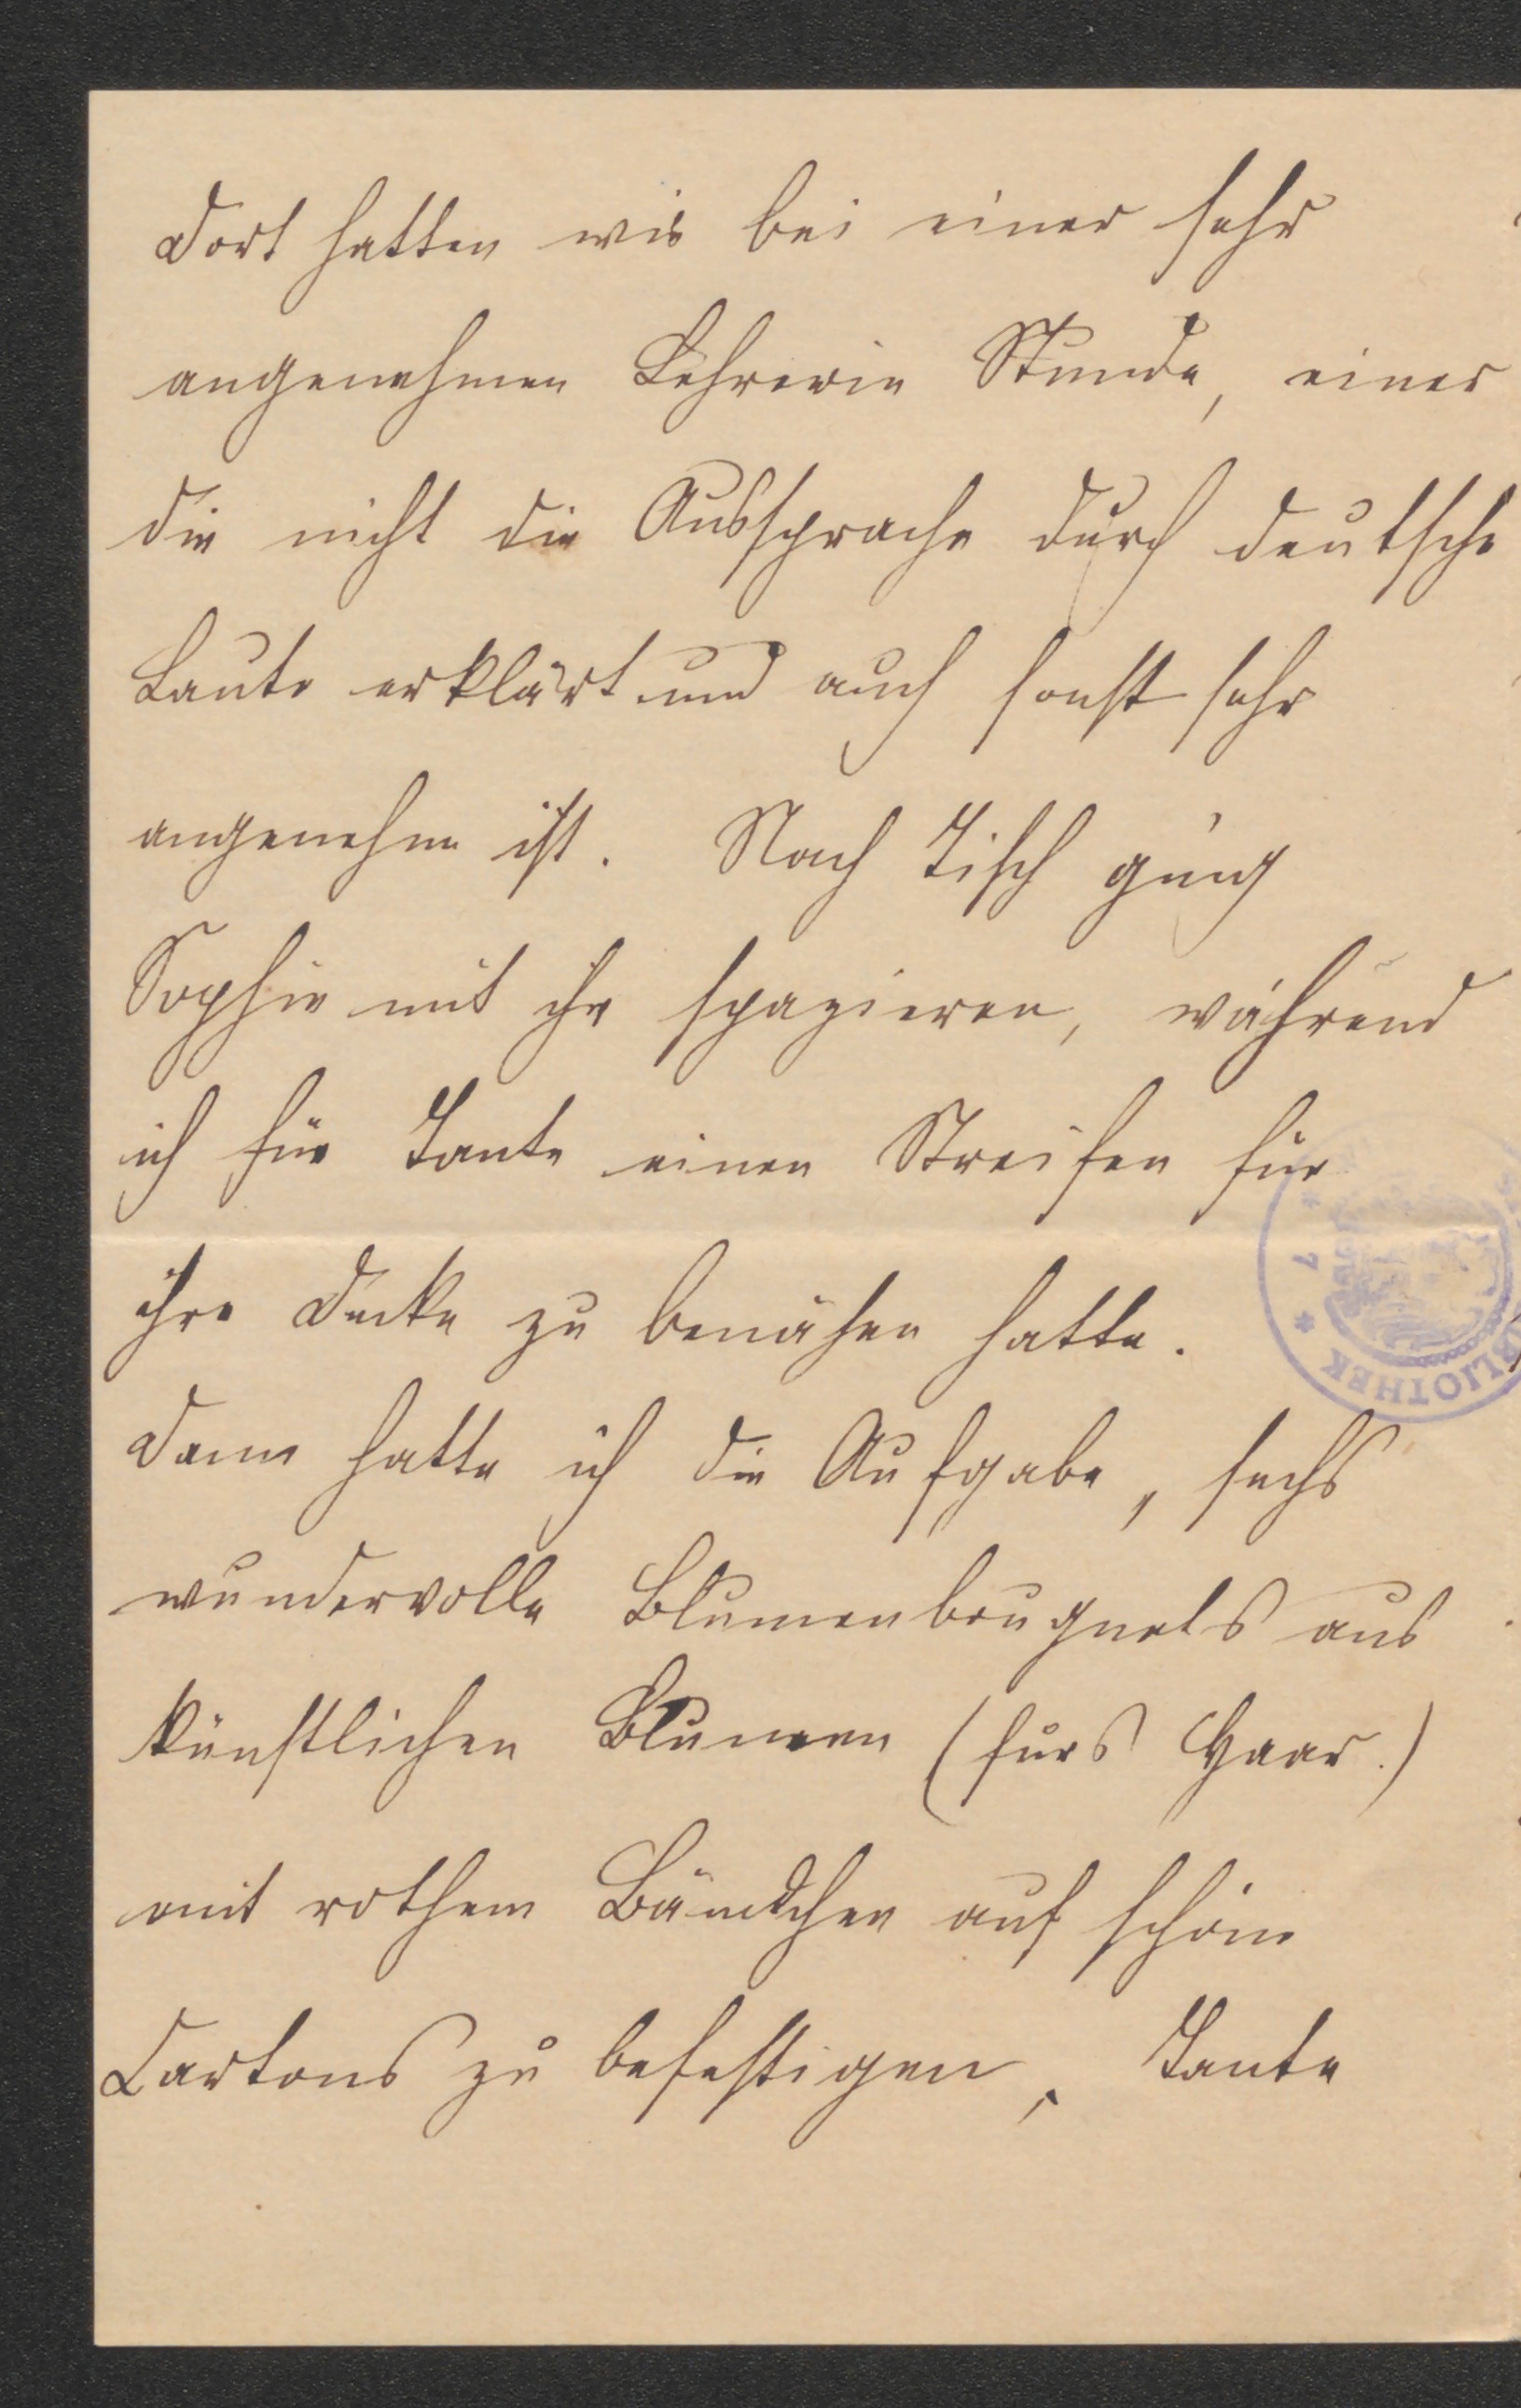 Dort hatten wir bei einer sehr
angenehmen Lehrerin Stunde, einer
die nicht die Aussprache durch deutsche
Laute erklärt und auch sonst sehr
angenehm ist. Nach Tisch ging
Sophie mit ihr spazieren, während
ich für Tante einen Streifen für
ihre Decke zu benähen hatte.
Dann hatte ich die Aufgabe, sechs
wundervolle Blumenbouquets aus
künstlichen Blumen (fürs Haar.)
mit rothem Bändchen auf schöne
Cartons zu befestigen, Tante
BLIOTHEK * 7 *